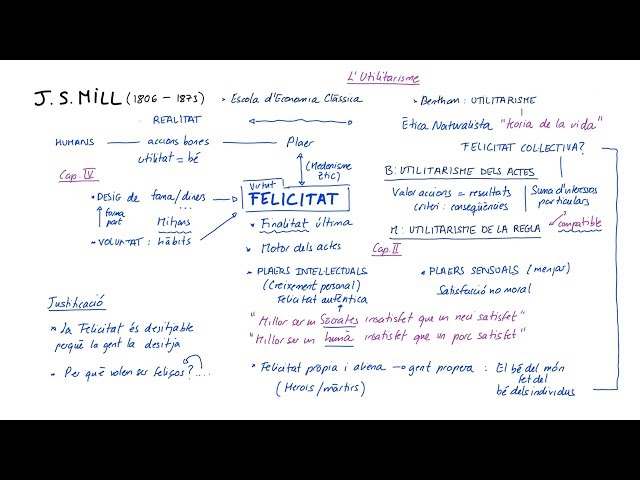 L'Utilitarisme
J. S. MILL (1806 - 1873)
• Escola d'Economia Clàssica
• Bentham : UTILITARISME
REALITAT
Ètica Naturalista "teoria de la vida"
HUMANS — accions bones — Plaer
utilitat = bé
FELICITAT COL·LECTIVA?
(Hedonisme ètic)
B: UTILITARISME DELS ACTES
Cap. IV
Virtut
FELICITAT
• DESIG de fama/diners
...
forma part
Mitjans
• VOLUNTAT : hàbits
Valor accions = resultats
criteri : conseqüències
Suma d'interessos particulars
compatible
M: UTILITARISME DE LA REGLA
Cap. II
• Finalitat última
• Motor dels actes
• PLAERS INTEL·LECTUALS
(Creixement personal)
Felicitat autèntica
• PLAERS SENSUALS (menjar)
Satisfacció no moral
"Millor ser un Sòcrates insatisfet que un neci satisfet"
"Millor ser un humà insatisfet que un porc satisfet"
Justificació
• La Felicitat és desitjable
perquè la gent la desitja
• Per què volen ser feliços? ....
• Felicitat pròpia i aliena → gent propera :
(Herois/màrtirs)
El bé del món
fet del
bé dels individus